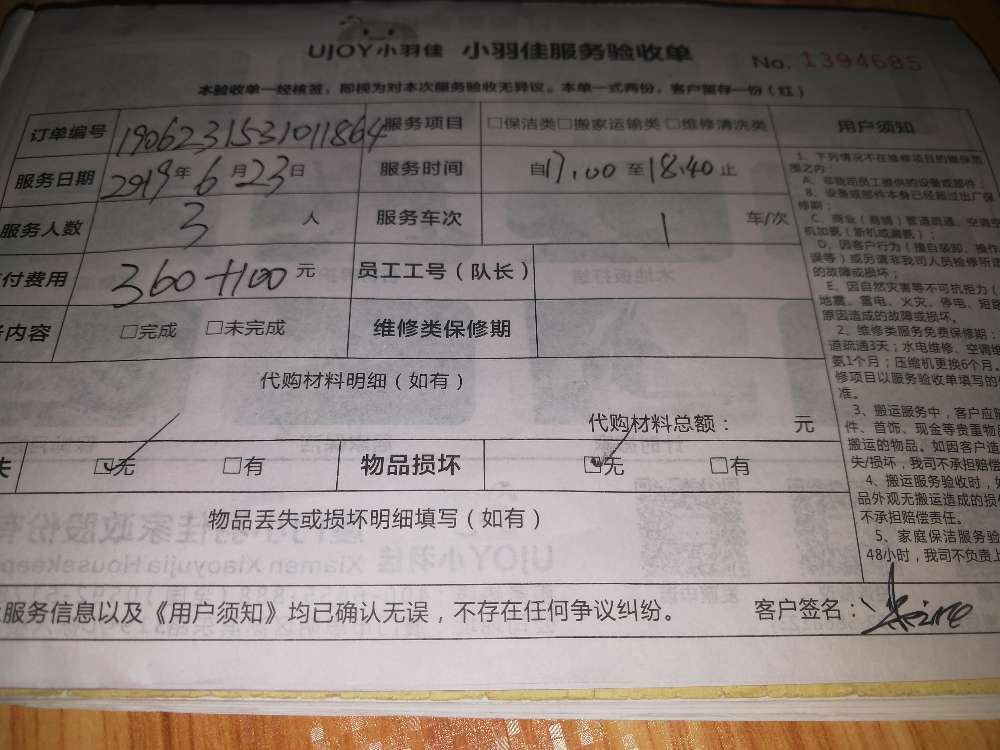 UJOY小羽佳 小羽佳服务验收单
No. 1394685
本验收单一经核签，即视为对本次服务验收无异议。本单一式两份，客户留存一份（红）
订单编号 1906231531011864 服务项目 □保洁类□搬家运输类□维修清洗类
服务日期 2019年6月23日 服务时间 自17:00至18:40止
服务人数 3 人 服务车次 1 车/次
付费用 360+100元 员工工号（队长）
内容 □完成 □未完成 维修类保修期
代购材料明细（如有）
代购材料总额： 元
失 ☑无 □有 物品损坏 ☑无 □有
物品丢失或损坏明细填写（如有）
服务信息以及《用户须知》均已确认无误，不存在任何争议纠纷。 客户签名：
用户须知
1、下列情况不在维修项目的维保范
围之内：
A、非我司员工提供的设备或部件；
B、设备或部件本身已经超过出厂保
修期；
C、商业（商铺）管道疏通、空调
机加氨（新机或漏氨）；
D、因客户行为（擅自装卸、操作
误等）或另请非我司人员检修所造
的故障或损坏；
E、因自然灾害等不可抗拒力（
地震、雷电、火灾、停电、短路
原因造成的故障或损坏。
2、维修类服务免费保修期：
道疏通3天；水电维修、空调维
氨1个月；压缩机更换6个月。
修项目以服务验收单填写的
准。
3、搬运服务中，客户应
件、首饰、现金等贵重物
搬运的物品。如因客户造
失/损坏，我司不承担赔偿
4、搬运服务验收时，如
品外观无搬运造成的损
不承担赔偿责任。
5、家庭保洁服务验
48小时，我司不负责上